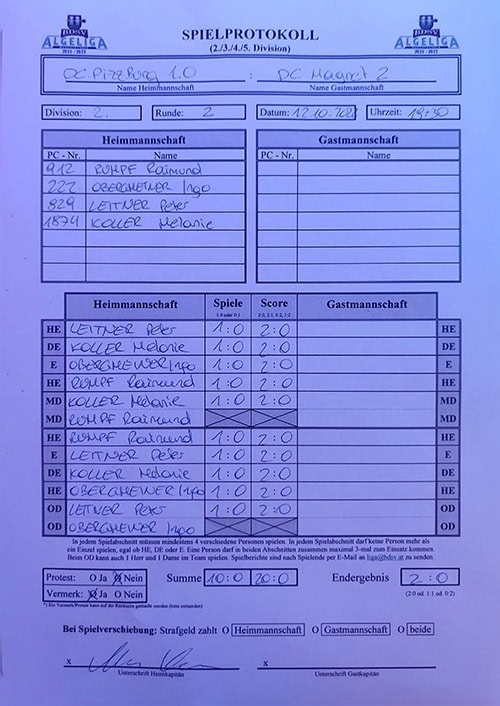 BDSV ALGELIGA 2022 / 2023
SPIELPROTOKOLL
BDSV ALGELIGA 2022 / 2023
(2./3./4./5. Division)
DC Pizzburg 1.0 : DC Magret 2
Name Heimmannschaft Name Gastmannschaft
Division: 2. Runde: 2 Datum: 12.10.2022 Uhrzeit: 19:30
Heimmannschaft Gastmannschaft
PC - Nr. Name PC - Nr. Name
912 RUMPF Raimund
222 OBERGMEINER Ingo
829 LEITNER Peter
1874 KOLLER Melanie
Heimmannschaft Spiele Score Gastmannschaft
1:0 oder 0:1 2:0, 2:1, 0:2, 1:2
HE LEITNER Peter 1:0 2:0 HE
DE KOLLER Melanie 1:0 2:0 DE
E OBERGMEINER Ingo 1:0 2:0 E
HE RUMPF Raimund 1:0 2:0 HE
MD KOLLER Melanie 1:0 2:0 MD
MD RUMPF Raimund MD
HE RUMPF Raimund 1:0 2:0 HE
E LEITNER Peter 1:0 2:0 E
DE KOLLER Melanie 1:0 2:0 DE
HE OBERGMEINER Ingo 1:0 2:0 HE
OD LEITNER Peter 1:0 2:0 OD
OD OBERGMEINER Ingo OD
In jedem Spielabschnitt müssen mindestens 4 verschiedene Personen spielen. In jedem Spielabschnitt darf keine Person mehr als
ein Einzel spielen, egal ob HE, DE oder E. Eine Person darf in beiden Abschnitten zusammen maximal 3-mal zum Einsatz kommen.
Beim OD kann auch 1 Herr und 1 Dame im Team spielen. Spielberichte sind nach Spielende per E-Mail an liga@bdsv.at zu senden.
Protest: O Ja O Nein Summe 10:0 20:0 Endergebnis 2:0
Vermerk: O Ja O Nein (2:0 od. 1:1 od. 0:2)
*) Ein Vermerk/Protest kann auf der Rückseite gemacht werden (bitte unterzeichnen)
Bei Spielverschiebung: Strafgeld zahlt O Heimmannschaft O Gastmannschaft O beide
x x
Unterschrift Heimkapitän Unterschrift Gastkapitän